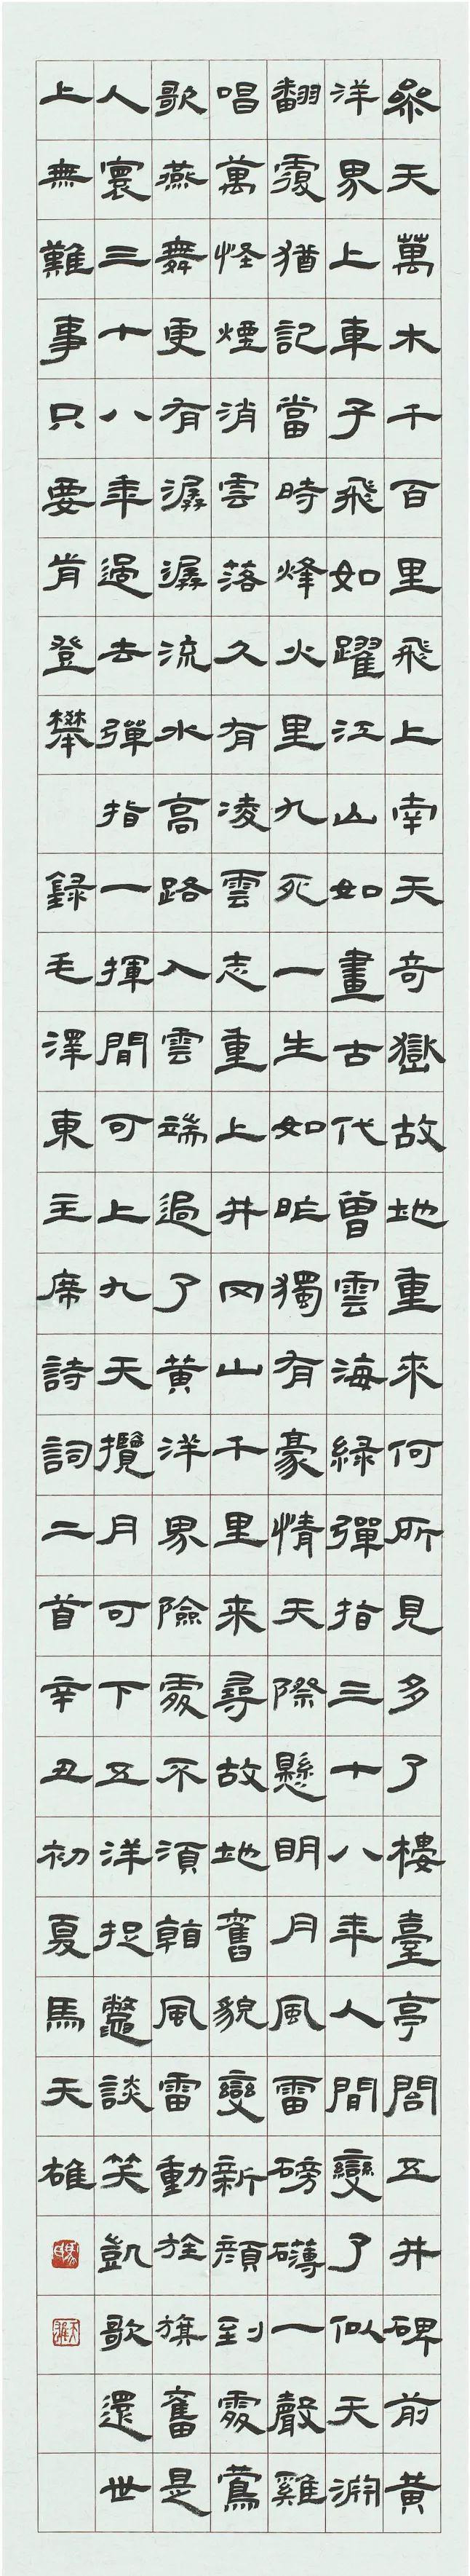 參天萬木千百里飛上南天奇嶽故地重來何所見多了樓臺亭閣五井碑前黃
洋界上車子飛如躍江山如畫古代曾雲海綠彈指三十八年人間變了似天淵
翻覆猶記當時烽火里九死一生如昨獨有豪情天際懸明月風雷磅礴一聲雞
唱萬怪煙消雲落久有凌雲志重上井岡山千里来尋故地舊貌變新顏到處鶯
歌燕舞更有潺潺流水高路入雲端過了黃洋界險處不須看風雷動旌旗奮是
人寰三十八年過去彈指一揮間可上九天攬月可下五洋捉鱉談笑凱歌還世
上無難事只要肯登攀 錄毛澤東主席詩詞二首辛丑初夏馬天雄